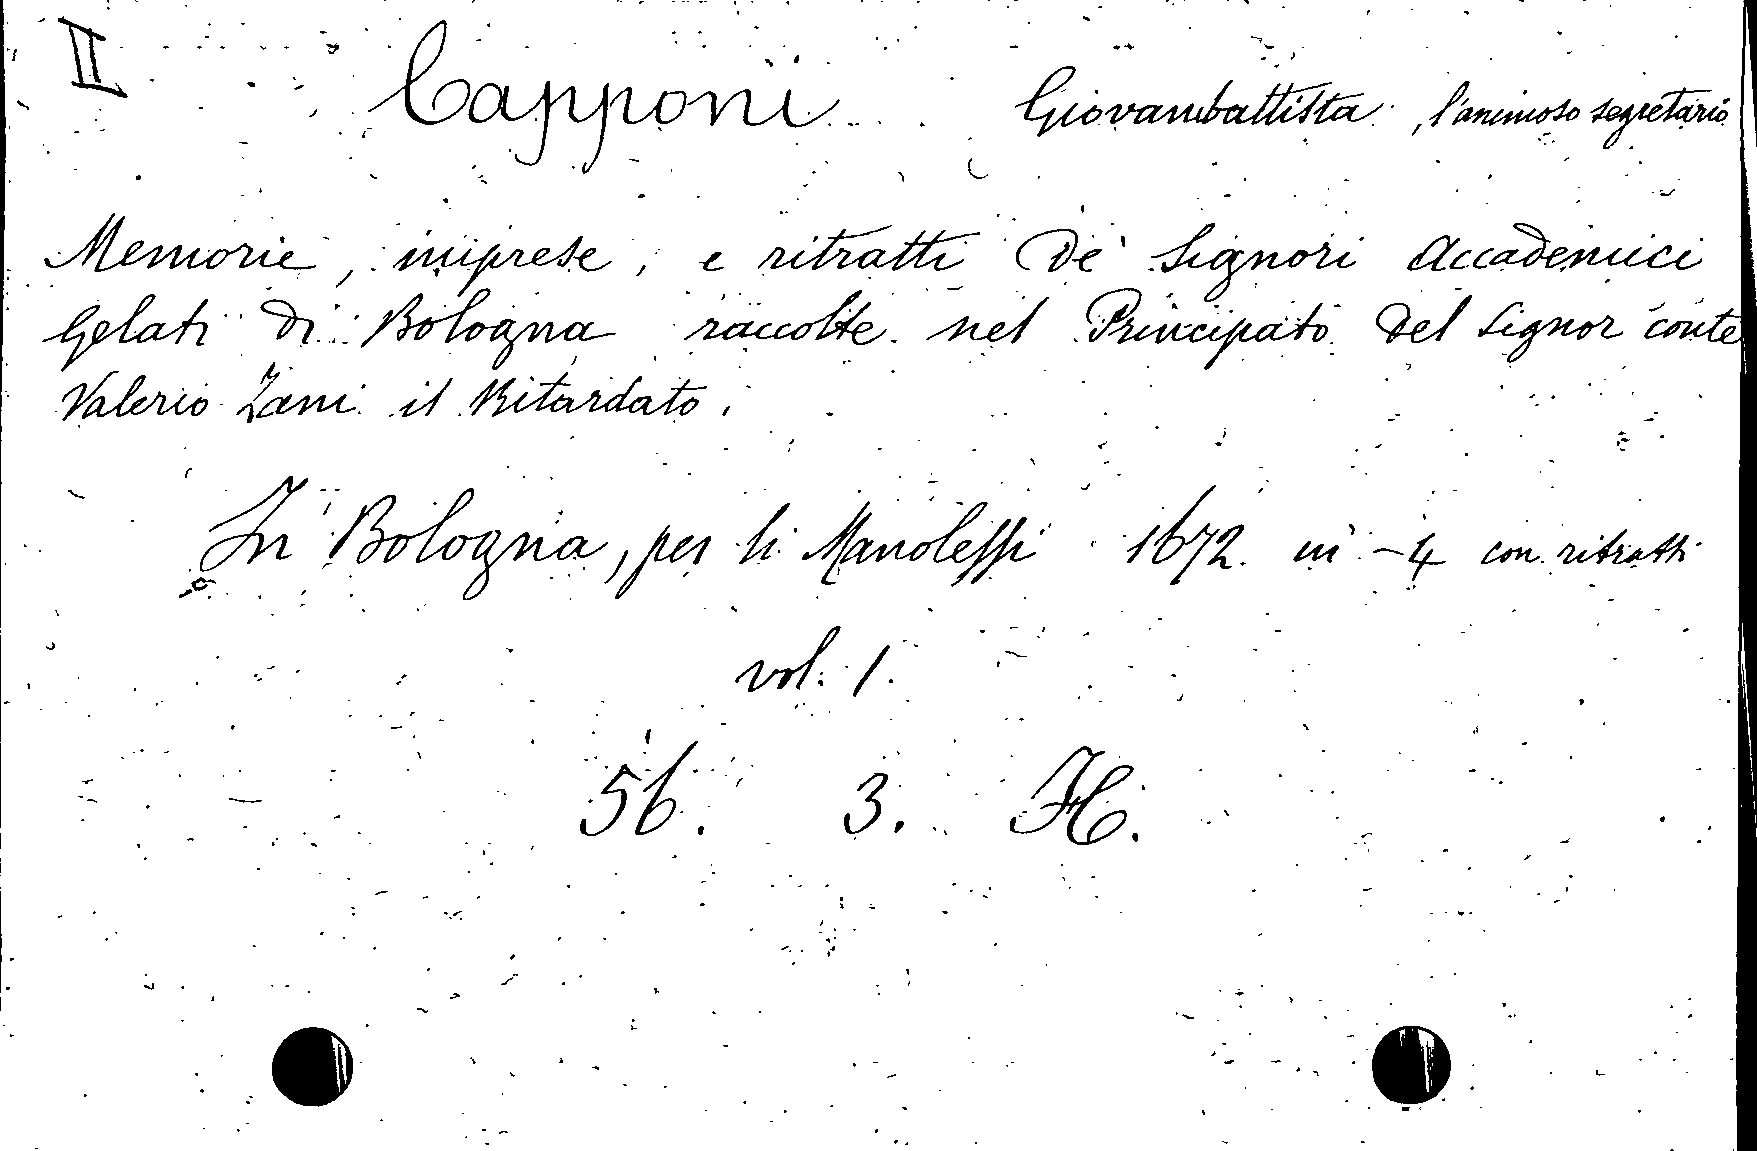 II Capponi Giovambattista, l'animoso segretario
Memorie, imprese, e ritratti de' Signori Accademici
Gelati di Bologna raccolte nel Principato del Signor conte
Valerio Zani il Ritardato.
In Bologna, per li Manolessi 1672. in-4 con ritratti
vol. 1.
56. 3. H.